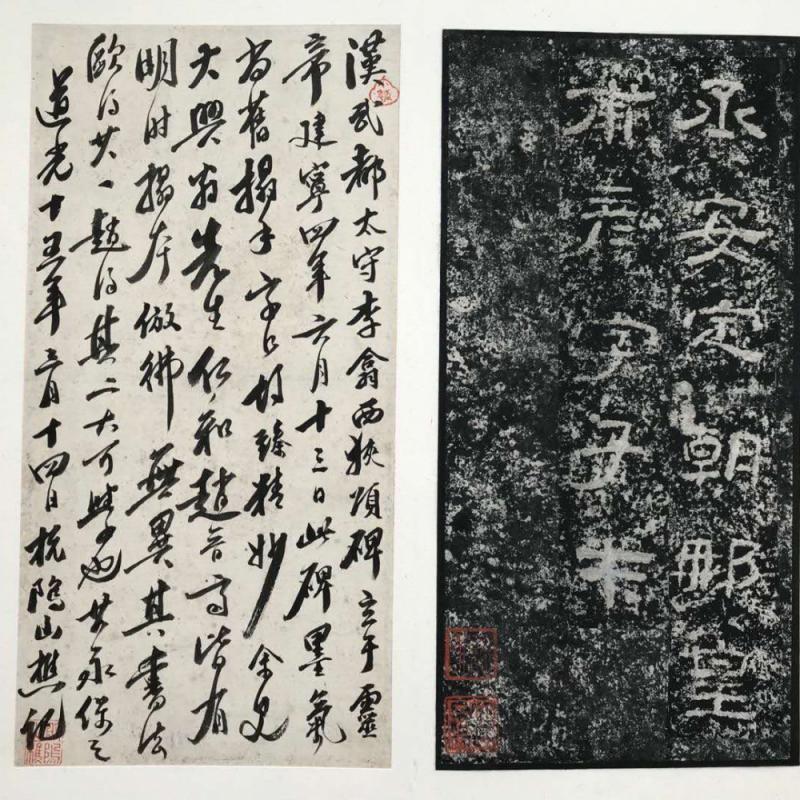 丞安定朝那皇
甫彥字子才
漢武都太守李翕西狹頌碑立于靈
帝建寧四年六月十三日此碑墨氣
尚舊搨手字口均臻精妙余見
大興翁先生仁和趙晉齋皆有
明時搨本倣彿無異其書法
歐得其一趙得其二大可學也其永保之
道光十五年三月十四日杭隝山樵記